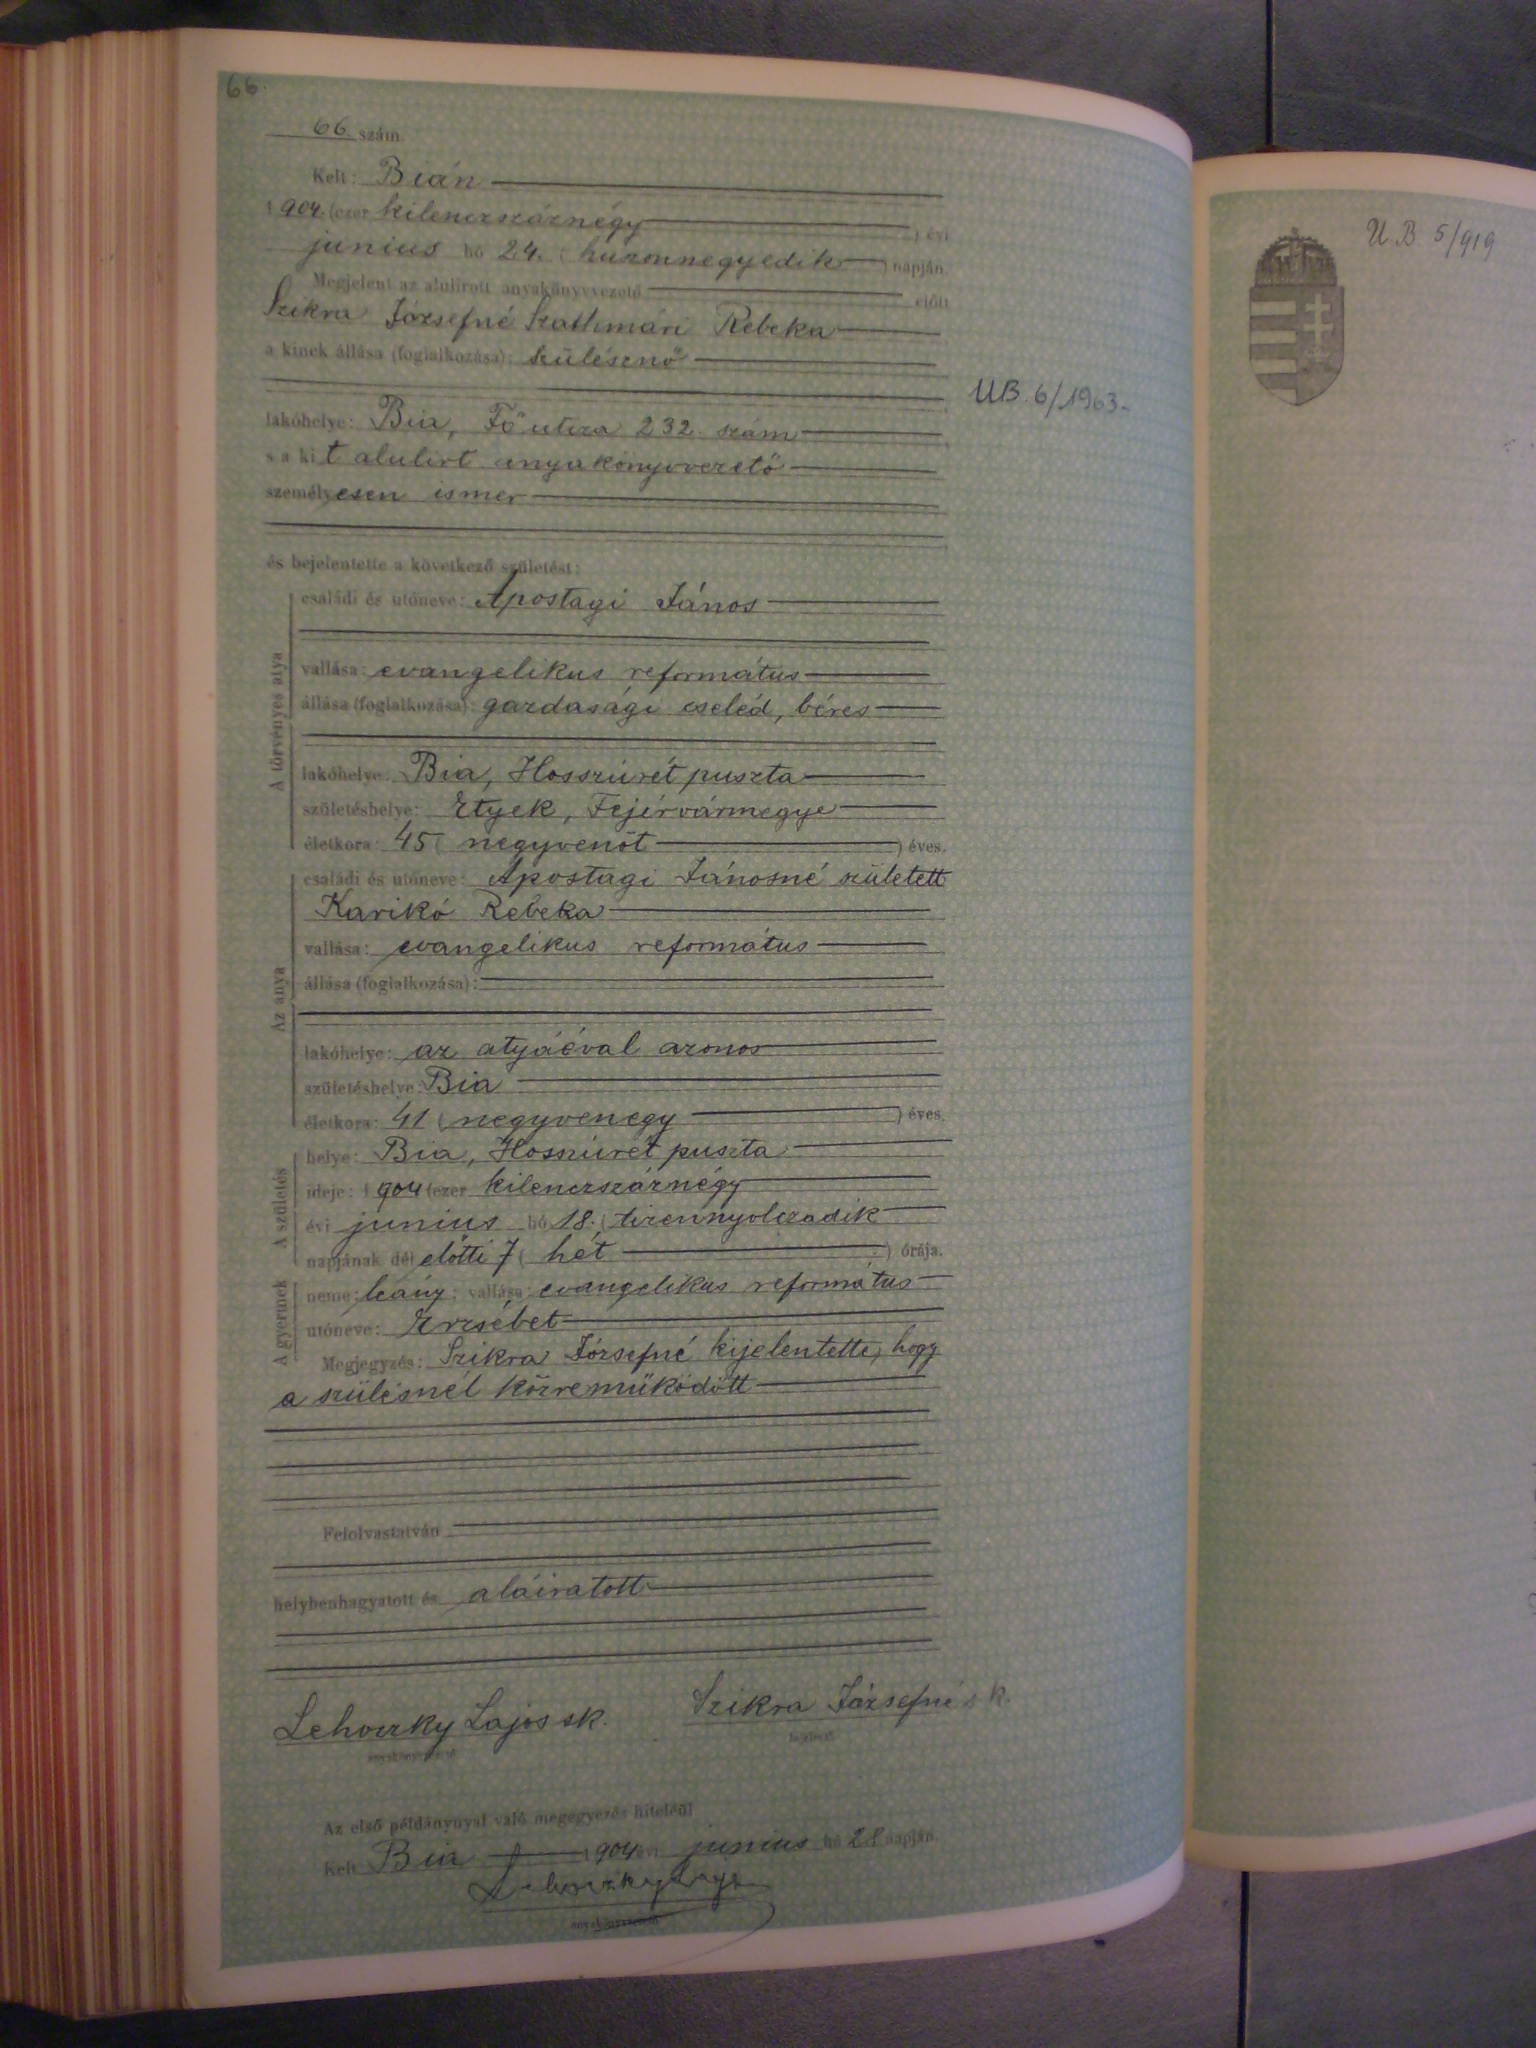 66.
66. szám.
Kelt: Bián
1904. (ezer kilenczszáznégy ) évi
junius hó 24. ( huszonnegyedik ) napján.
Megjelent az alulirott anyakönyvvezető előtt
Szikra Józsefné Szathmári Rebeka
a kinek állása (foglalkozása): szülésznő
lakóhelye: Bia, Fő utcza 232. szám
s a kit alulirt anyakönyvvezető
személyesen ismer
és bejelentette a következő születést:
A törvényes atya
családi és utóneve: Apostagi János
vallása: evangelikus református
állása (foglalkozása): gazdasági cseléd, béres
lakóhelye: Bia, Hosszúrét puszta
születéshelye: Etyek, Fejérvármegye
életkora: 45 ( negyvenöt ) éves.
Az anya
családi és utóneve: Apostagi Jánosné született
Karikó Rebeka
vallása: evangelikus református
állása (foglalkozása):
lakóhelye: az atyáéval azonos
születéshelye: Bia
életkora: 41 ( negyvenegy ) éves.
A születés
helye: Bia, Hosszúrét puszta
ideje: 1904 (ezer kilenczszáznégy
évi junius hó 18. ( tizennyolczadik
napjának dél előtti 7 ( hét ) órája.
A gyermek
neme: leány; vallása: evangelikus református
utóneve: Erzsébet
Megjegyzés: Szikra Józsefné kijelentette, hogy
a szülésnél közreműködött
Felolvastatván
helybenhagyatott és aláiratott
Lehoczky Lajos sk. Szikra Józsefné s k.
anyakönyvvezető bejelentő
Az első példánynyal való megegyezés hiteléül
Kelt Bia 1904 évi junius hó 28 napján.
Lehoczky Lajos
anyakönyvvezető
UB. 6/1963.
U. B. 5/919